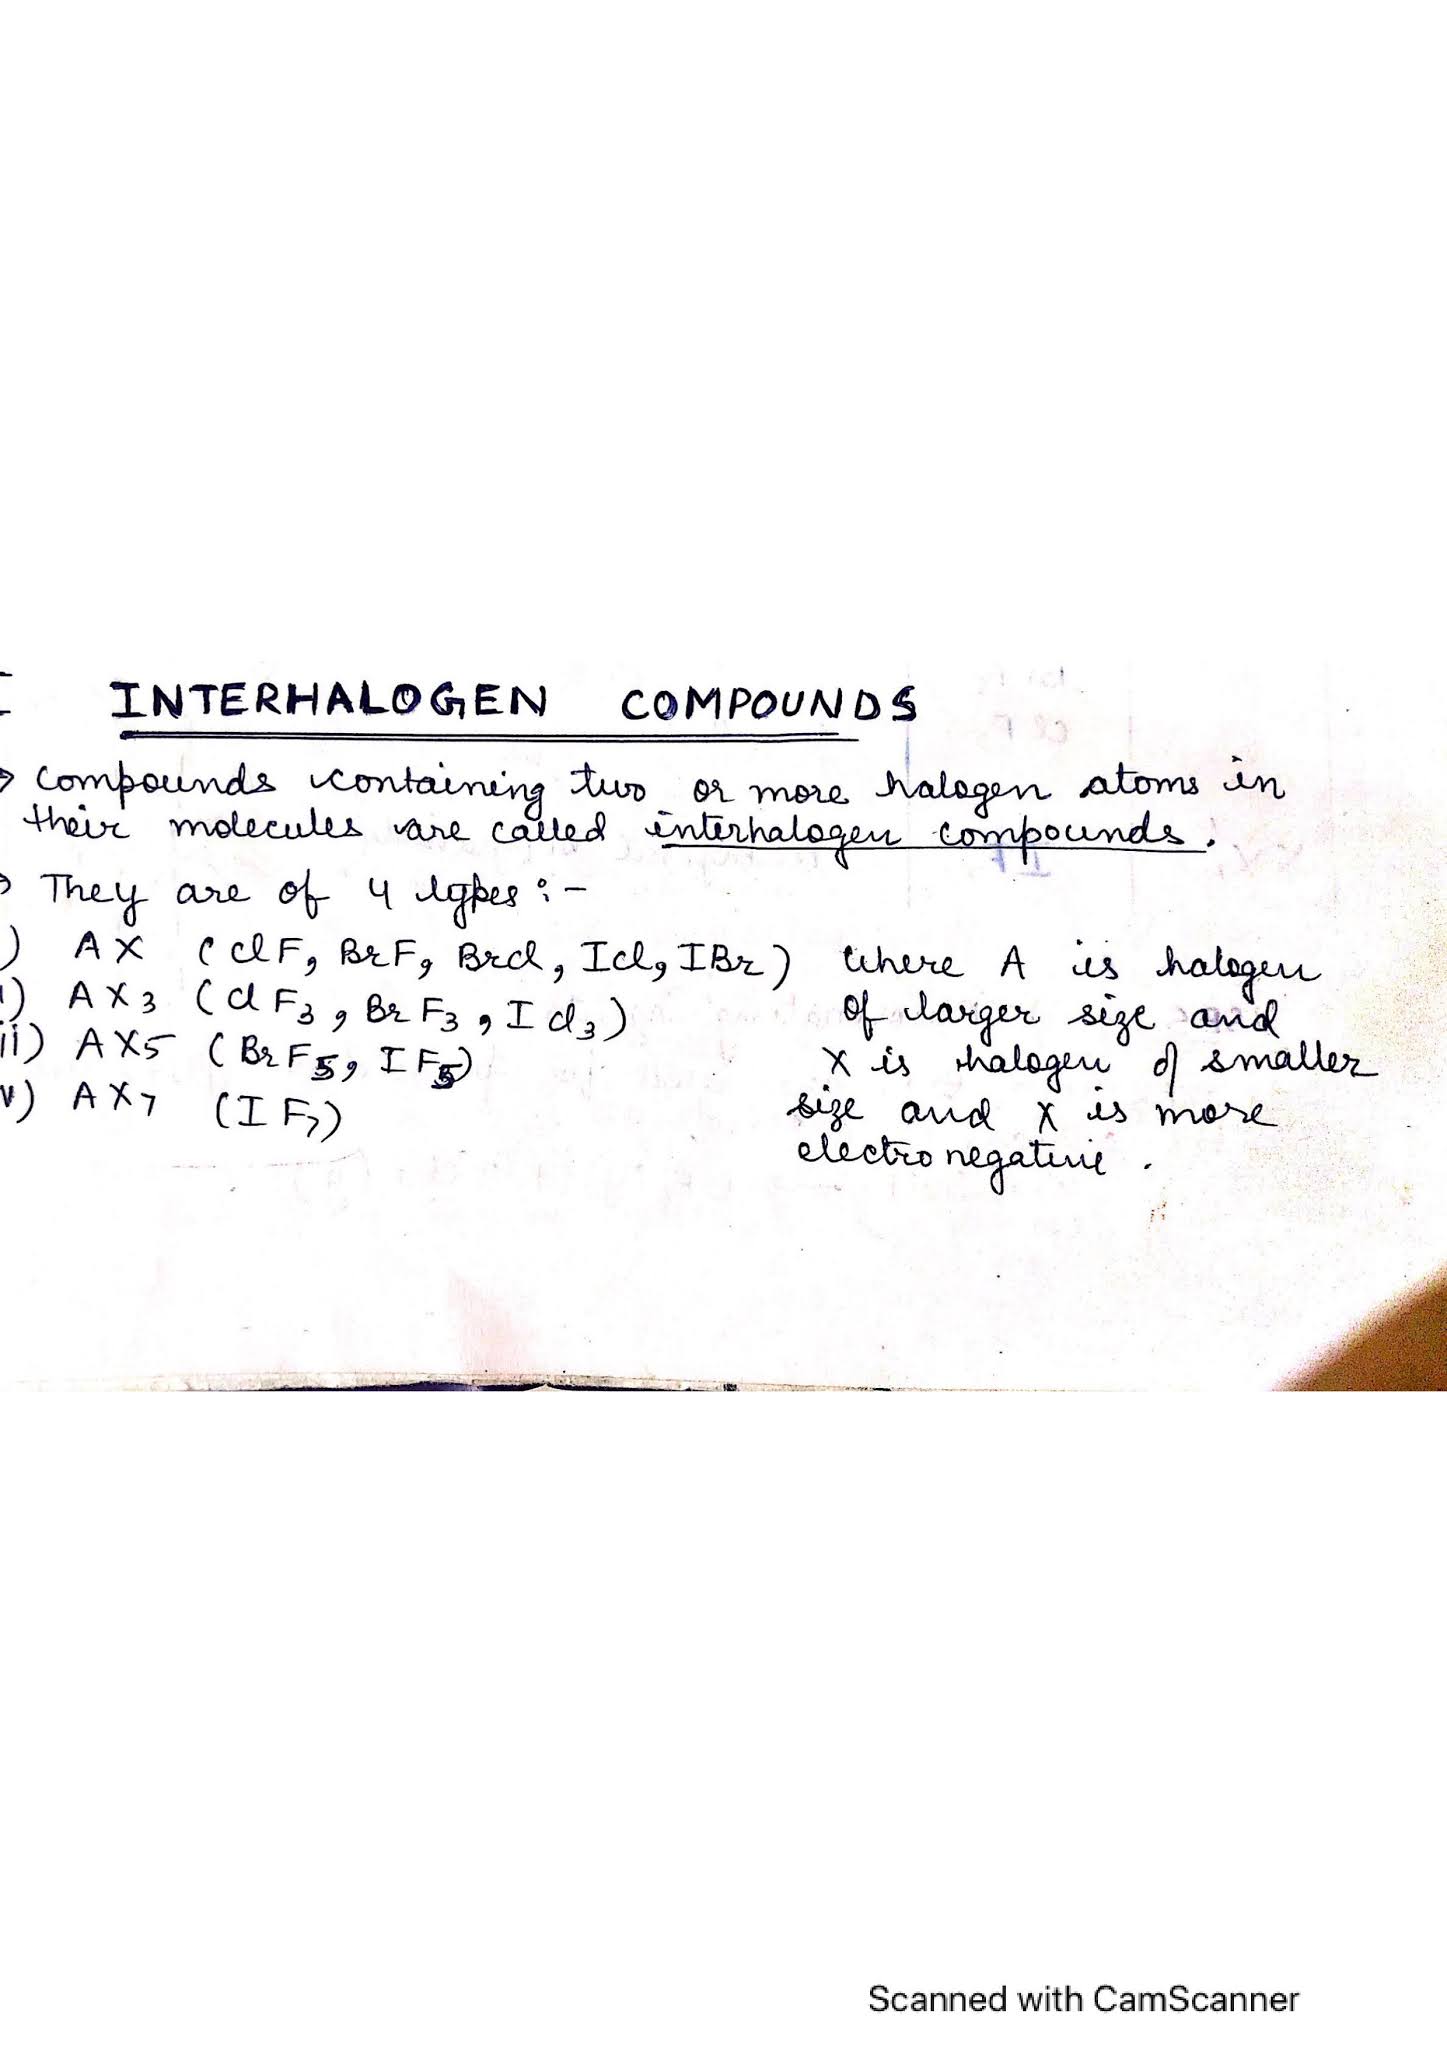 I INTERHALOGEN COMPOUNDS
→ Compounds containing two or more halogen atoms in
their molecules are called interhalogen compounds.
→ They are of 4 types :-
) AX (ClF, BrF, BrCl, ICl, IBr) where A is halogen
i) AX3 (ClF3, BrF3, ICl3) of larger size and
ii) AX5 (BrF5, IF5) X is halogen of smaller
v) AX7 (IF7) size and X is more
electronegative.
Scanned with CamScanner